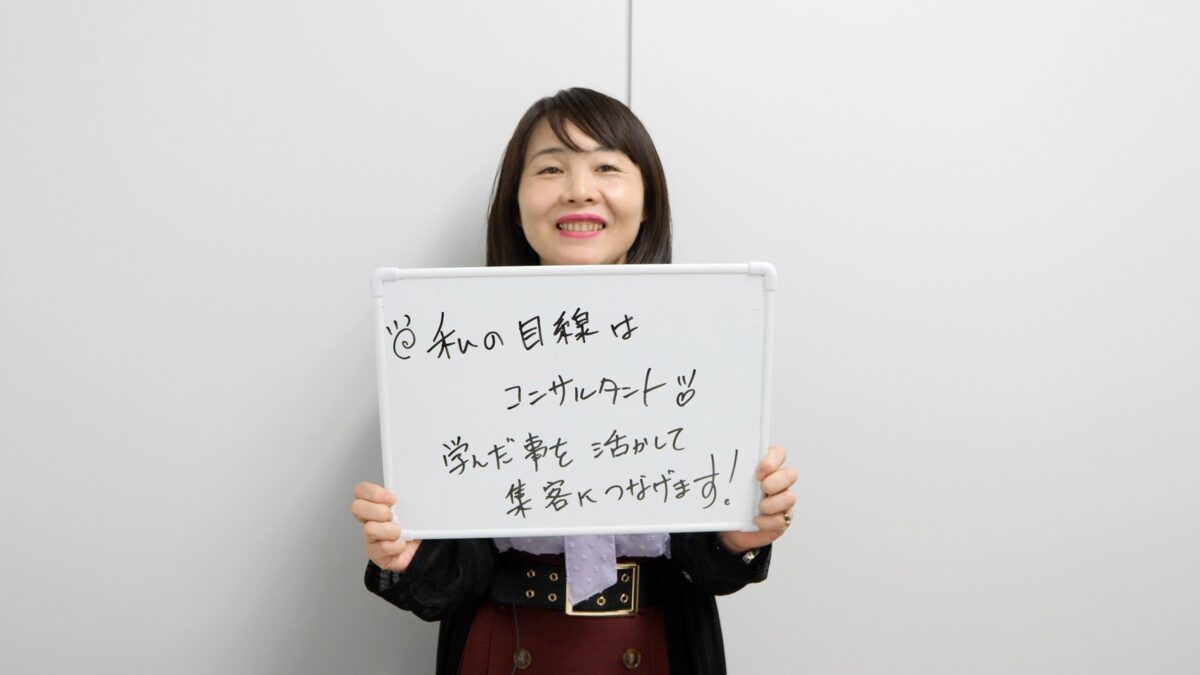 私の目線は
コンサルタント
学んだ事を活かして
集客につなげます!